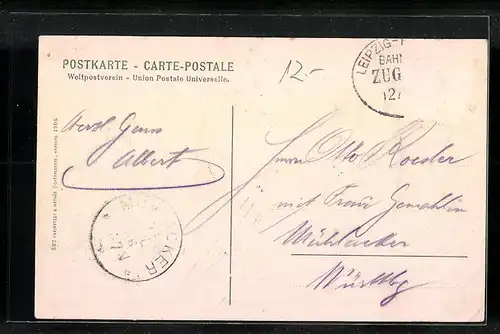 POSTKARTE - CARTE-POSTALE
Weltpostverein - Union Postale Universelle.
12.-
LEIPZIG-
BAH
ZUG
12
Herzl. Gruss
Albert
Herrn Otto Roesler
mit Frau Gemahlin
Mühlacker
Württbg
MÜ CKER